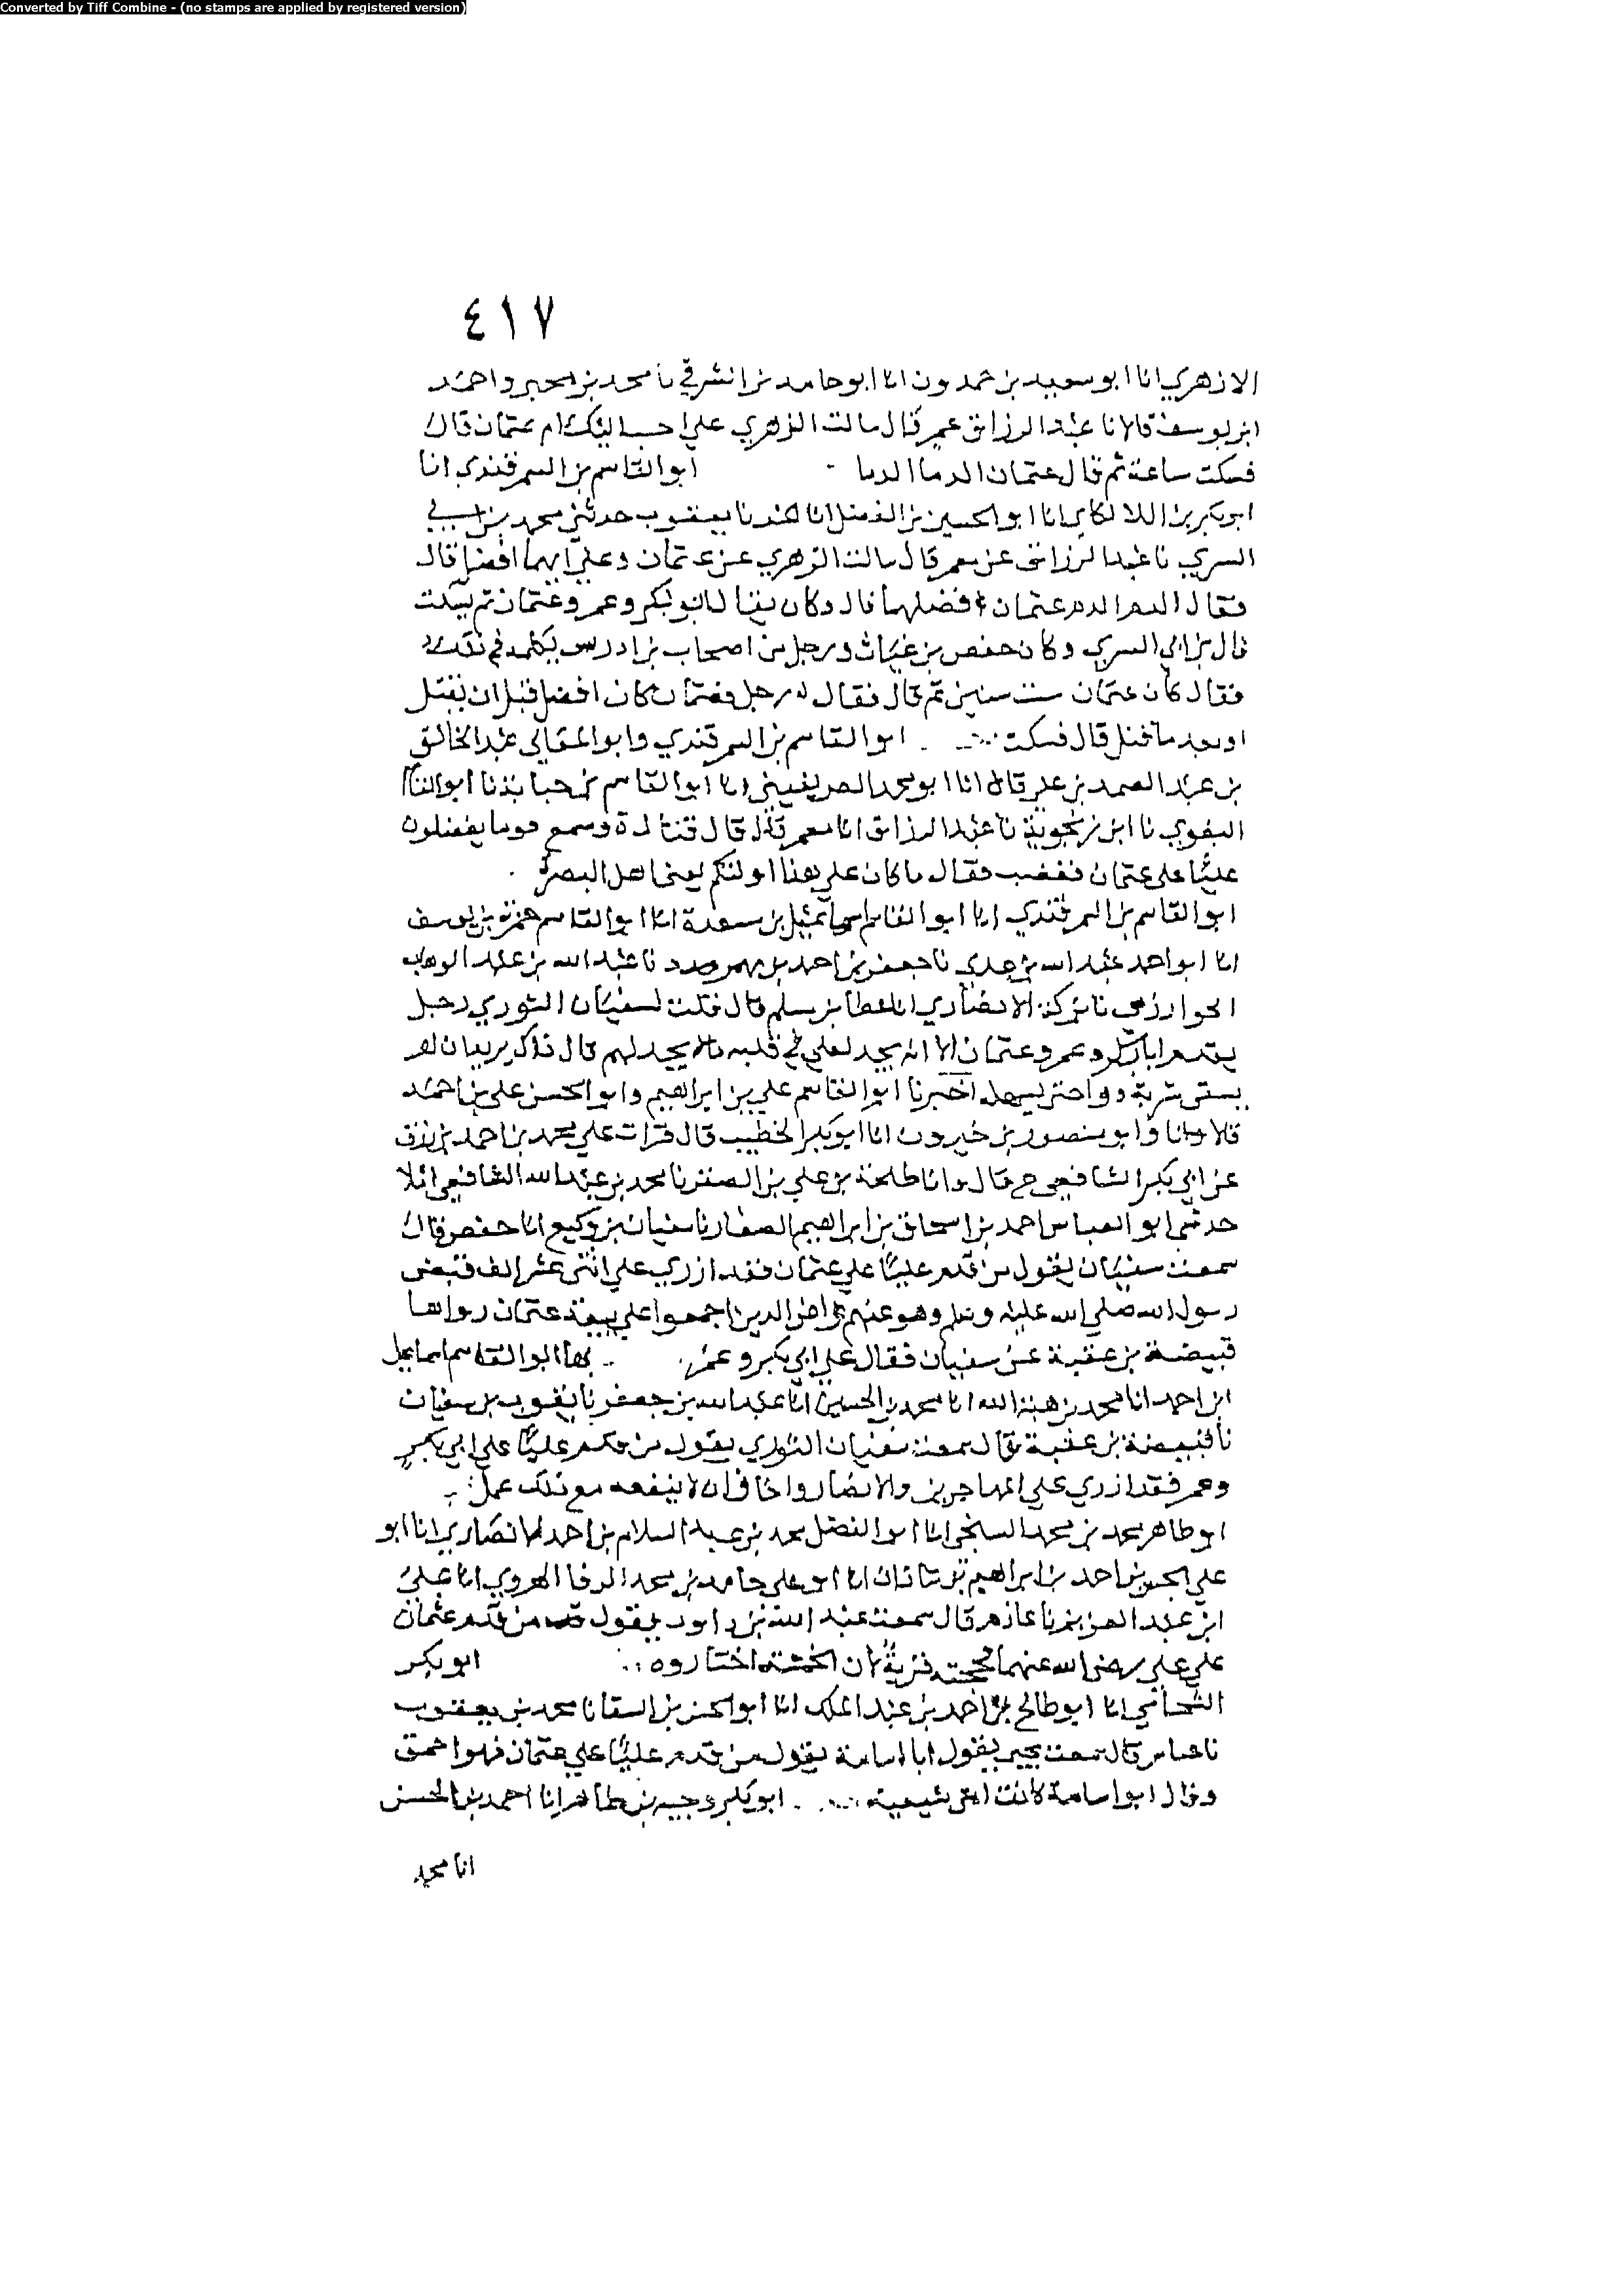 Converted by Tiff Combine - (no stamps are applied by registered version)
٤١٧
الازهري انا ابو سعيد بن حمدون انا ابو حامد بن الشرقي نا محمد بن يحيى واحمد
ابن يوسف قالا نا عبد الرزاق عمر قال سالت الزهري علي احب اليك ام عثمان قال
فسكت ساعة ثم قال عثمان الدما الدما ابو القاسم بن السمرقندي انا
ابو بكر بن اللالكاي انا ابو الحسين بن الفضل انا نا يعقوب حدثني محمد بن ابي
السري نا عبد الرزاق عن معمر قال سالت الزهري عن عثمان وعلي ايهما افضل قال
فقال الدم الدم عثمان افضلهما قال وكان يقال ابو بكر وعمر وعثمان ثم يسكت
قال بن ابي السري وكان حفص بن غياث ورجل من اصحاب بن ادريس في
فقال كان عثمان ست سنين ثم قال فقال له رجل فعثمان كان افضل قبل ان يقتل
او بعد ما قتل قال فسكت ابو القاسم بن السمرقندي وابو المعالي عبد الخالق
بن عبد الصمد بن علي قالا انا ابو محمد الصريفيني انا ابو القاسم بن حبابة نا ابو القا
البغوي نا ابن زنجويه نا عبد الرزاق انا معمر قال قال قتادة وسمع قوما يفضلون
عليًا على عثمان فغضب فقال ما كان على هذا اولئكم يعني اهل البصرة
ابو القاسم بن السمرقندي انا ابو القاسم اسماعيل بن مسعدة انا ابو القاسم حمزة بن يوسف
انا ابو احمد عبد الله بن عدي نا جعفر بن احمد بن نا عبد الله بن عبد الوهاب
الخوارزمي نا بركة الانصاري انا عطا بن مسلم قال قلت لسفيان الثوري رجل
يقدم ابا بكر وعمر وعثمان الا انه يجد لعلي في قلبه مالا يجد لهم قال
يسقى شربة دوا حتى يسهل اخبرنا ابو القاسم علي بن ابراهيم وابو الحسن علي بن احمد
قالا نا وابو منصور بن خيرون انا ابو بكر الخطيب قال قرات على محمد بن احمد بن رزق
عن ابي بكر الشافعي ح قال وانا طلحة بن علي بن الصقر نا محمد بن عبد الله الشافعي املا
حدثني ابو العباس احمد بن اسحاق بن ابراهيم الصفار نا سفيان بن وكيع انا حفص قال
سمعت سفيان يقول من قدم عليًا على عثمان فقد ازري على اثنى عشر الف قبض
رسول الله صلى الله عليه وسلم وهو عنهم راض الذين اجمعوا على بيعة عثمان رواها
قبيصة بن عقبة عن سفيان فقال على ابي بكر وعمر بها ابو القاسم اسماعيل
ابن احمد انا محمد بن هبة الله انا محمد بن الحسين انا عبد الله بن جعفر نا يعقوب بن سفيان
نا قبيصة بن عقبة قال سمعت سفيان الثوري يقول من قدم عليًا على ابي بكر
وعمر فقد ازري على المهاجرين والانصار واخاف ان لا ينفعه مع ذلك عمل
ابو طاهر محمد بن محمد السنجي انا ابو الفضل محمد بن عبد السلام بن احمد الانصاري انا ابو
علي الحسن بن احمد بن ابراهيم بن شاذان انا ابو علي حامد بن محمد الرفا الهروي انا علي
ابن عبد العزيز نا عازم قال سمعت عبد الله بن داود يقول من قدم عثمان
على علي رضى الله عنهما فحجته قوية لان الخمسة اختاروه ابو بكر
الشحامي انا ابو صالح احمد بن عبد الملك انا ابو الحسن بن السقا نا محمد بن يعقوب
نا عباس قال سمعت يحيى يقول ابا اسامة يقول من قدم عليًا على عثمان فهو احمق
وقال ابو اسامة كانت امى شيعية ابو بكر وجيه بن طاهر انا احمد بن الحسن
انا محمد